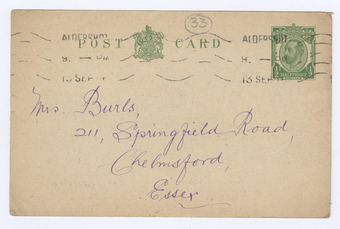 33
POST CARD
ALDERSHOT
ALDERSHOT
9. PM
9.
13 SEP
13 SEP
HALFPENNY
Mrs. Burls,
211, Springfield Road,
Chelmsford,
Essex.